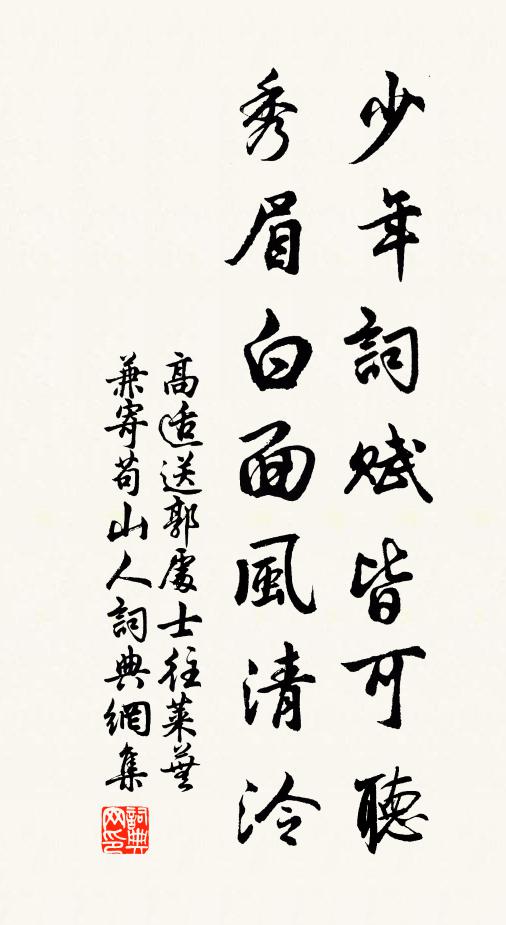 少年詞賦皆可聽
秀眉白面風清泠
高適送郭處士往萊蕪
兼寄苟山人詞典網集
詞典
网印